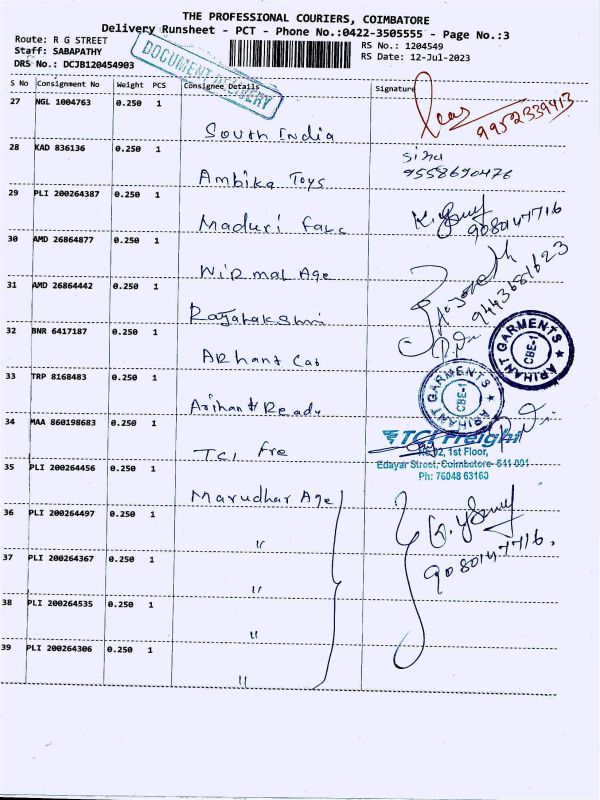 THE PROFESSIONAL COURIERS, COIMBATORE
Delivery Runsheet - PCT - Phone No.:0422-3505555 - Page No.:3
Route: R G STREET
Staff: SABAPATHY
DRS No.: DCJB120454903
RS No.: 1204549
RS Date: 12-Jul-2023
DOCUMENT DELIVERY
S No Consignment No Weight PCS Consignee Details Signature
27 NGL 1004763 0.250 1
South India
9952339913
28 KAD 836136 0.250 1
Ambika Toys
9558690476
29 PLI 200264387 0.250 1
Maduri
9080147716
30 AMD 26864877 0.250 1
Nirmal Age
9443681623
31 AMD 26864442 0.250 1
Rajarakshmi
32 BNR 6417187 0.250 1
Arhant Cot
ARIHANT GARMENTS
CBE-1
33 TRP 8168483 0.250 1
Arihant Ready
ARIHANT GARMENTS
CBE-1
34 MAA 860198683 0.250 1
TCI Fre
TCI Freight
No.92, 1st Floor,
Edayar Street, Coimbatore- 641 001
Ph: 76048 63160
35 PLI 200264456 0.250 1
Marudhar Age
36 PLI 200264497 0.250 1
"
9080147716.
37 PLI 200264367 0.250 1
"
38 PLI 200264535 0.250 1
"
39 PLI 200264306 0.250 1
"